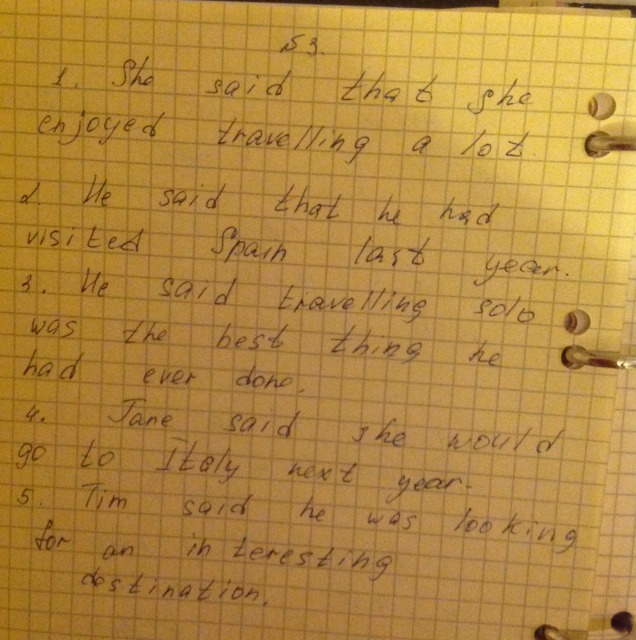 №3.
1. She said that she
enjoyed travelling a lot.
2. He said that he had
visited Spain last year.
3. He said travelling solo
was the best thing he
had ever done.
4. Jane said she would
go to Italy next year.
5. Tim said he was looking
for an interesting
destination.